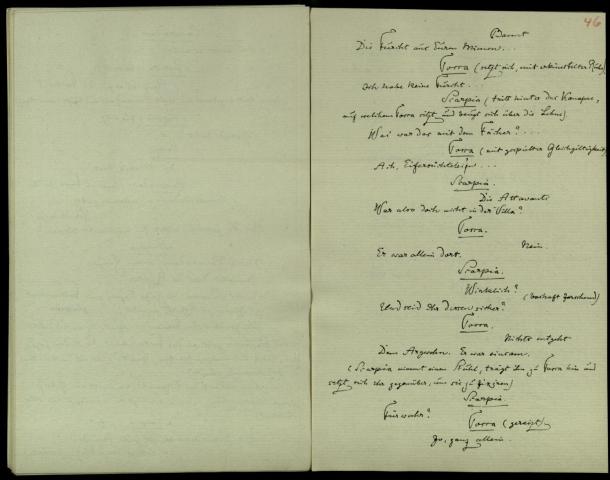 46
Bannt
Die Furcht aus Euren Mienen...
Tosca (setzt sich, mit erkünstelter Ruhe)
Ich habe keine Furcht...
Scarpia (tritt hinter das Kanapee,
auf welchem Tosca sitzt und beugt sich über die Lehne)
Was war das mit dem Fächer?...
Tosca (mit gespielter Gleichgiltigkeit)
Ach, Eifersüchtelei'n...
Scarpia.
Die Attavanti
War also doch nicht in der Villa?
Tosca.
Nein.
Er war allein dort.
Scarpia.
Wirklich?
(boshaft forschend)
Und seid Ihr dessen sicher?
Tosca.
Nichts entgeht
Dem Argwohn. Er war einsam.
(Scarpia nimmt einen Stuhl, trägt ihn zu Tosca hin und
setzt sich ihr gegenüber, um sie zu fixiren)
Scarpia.
Fürwahr?
Tosca (gereizt)
Ja, ganz allein.